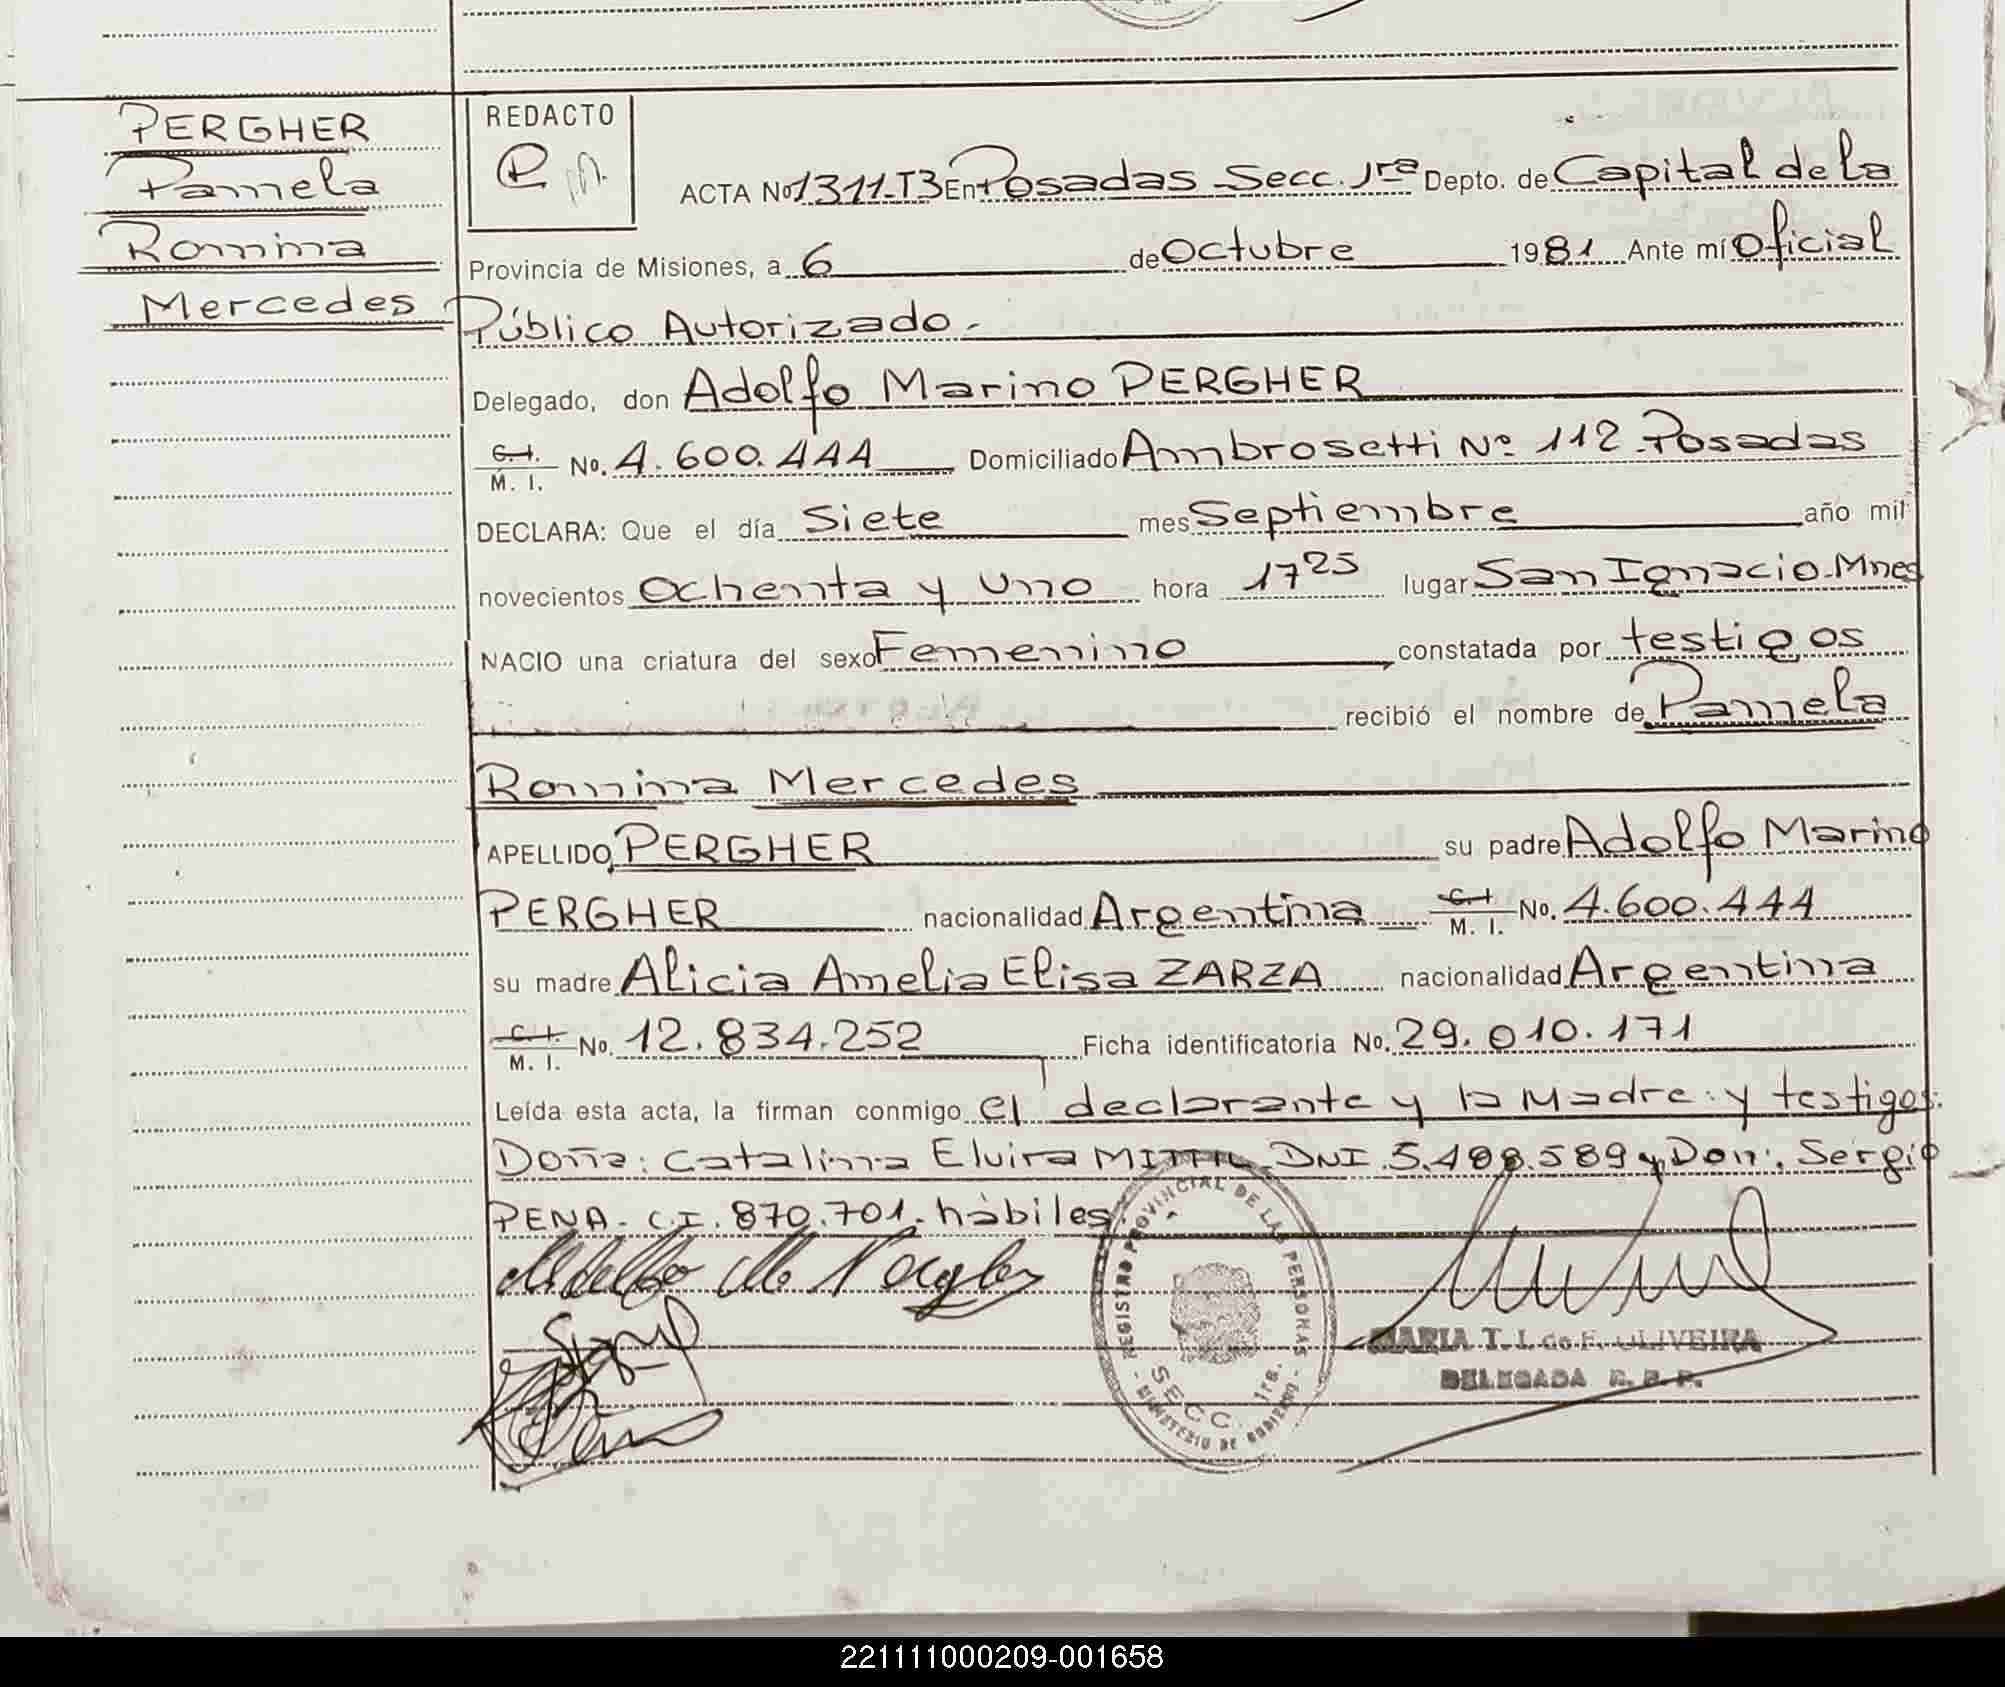 PERGHER
Pamela
Romina
Mercedes
REDACTO
ACTA No 1311-T3 En Posadas Secc. 1ra Depto. de Capital de la
Provincia de Misiones, a 6 de Octubre 1981 Ante mí Oficial
Público Autorizado.-
Delegado, don Adolfo Marino PERGHER
C.I.
M. I. No. 4.600.444 Domiciliado Ambrosetti Nº 112 Posadas
DECLARA: Que el día Siete mes Septiembre año mil
novecientos Ochenta y Uno hora 17 25 lugar San Ignacio-Mnes
NACIO una criatura del sexo Femenino constatada por testigos
recibió el nombre de Pamela
Romina Mercedes
APELLIDO PERGHER su padre Adolfo Marino
PERGHER nacionalidad Argentina C.I. M. I. No. 4.600.444
su madre Alicia Amelia Elisa ZARZA nacionalidad Argentina
C.I.
M. I. No. 12.834.252 Ficha identificatoria No. 29.010.171
Leída esta acta, la firman conmigo el declarante y la Madre. y testigos:
Doña: Catalina Elvira DNI 5.498.589 y Don: Sergio
PENA- C.I. 870.701- hàbiles.
REGISTRO PROVINCIAL DE LAS PERSONAS
SECC. 1ra.
- MINISTERIO DE GOBIERNO -
MARIA T. I. de F. OLIVEIRA
DELEGADA R. P. P.
221111000209-001658